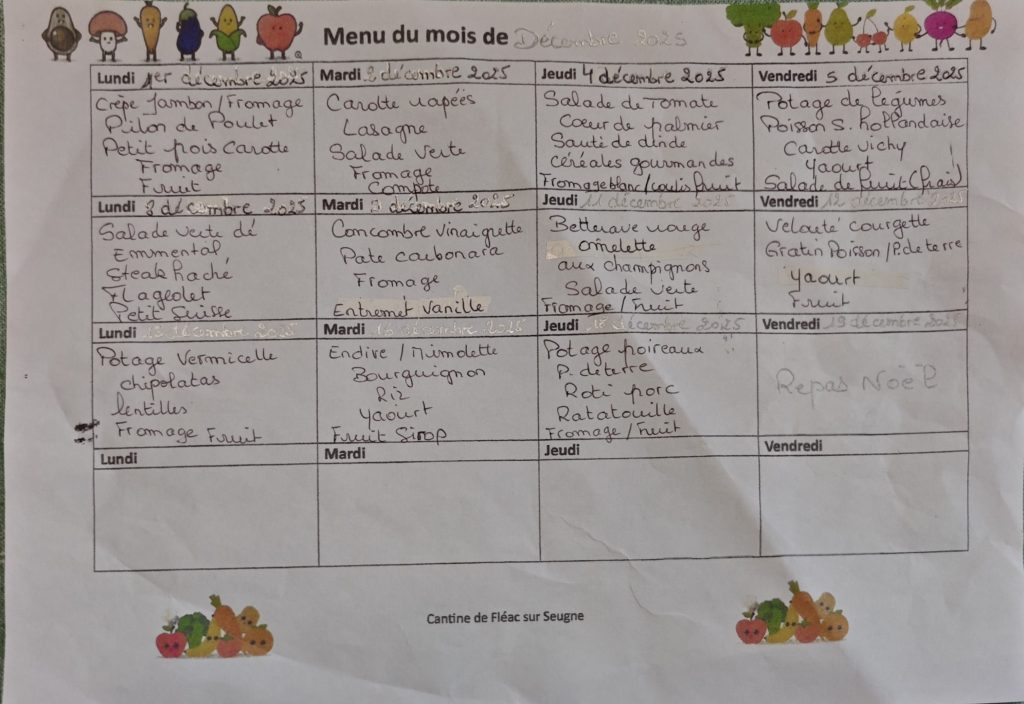 Menu du mois de Décembre 2025
Lundi 1er décembre 2025
Crêpe Jambon/Fromage
Pilon de Poulet
Petit pois Carotte
Fromage
Fruit
Mardi 2 décembre 2025
Carotte rapées
Lasagne
Salade Verte
Fromage
Compote
Jeudi 4 décembre 2025
Salade de Tomate
Coeur de palmier
Sauté de dinde
céréales gourmandes
Fromage blanc/coulis fruit
Vendredi 5 décembre 2025
Potage de légumes
Poisson S. hollandaise
Carotte Vichy
yaourt
Salade de fruit (frais)
Lundi 8 décembre 2025
Salade verte dé
Emmental
Steak haché
Flageolet
Petit Suisse
Mardi 9 décembre 2025
Concombre Vinaigrette
Pate carbonara
Fromage
Entremet Vanille
Jeudi 11 décembre 2025
Betterave rouge
Omelette
aux champignons
Salade verte
Fromage / Fruit
Vendredi 12 décembre 2025
Velouté courgette
Gratin Poisson / P. de terre
yaourt
Fruit
Lundi 15 décembre 2025
Potage Vermicelle
chipolatas
lentilles
Fromage Fruit
Mardi 16 décembre 2025
Endive / Mimolette
Bourguignon
Riz
yaourt
Fruit Sirop
Jeudi 18 décembre 2025
Potage poireaux
P. de terre
Roti porc
Ratatouille
Fromage / Fruit
Vendredi 19 décembre 2025
Repas Noël
Lundi
Mardi
Jeudi
Vendredi
Cantine de Fléac sur Seugne